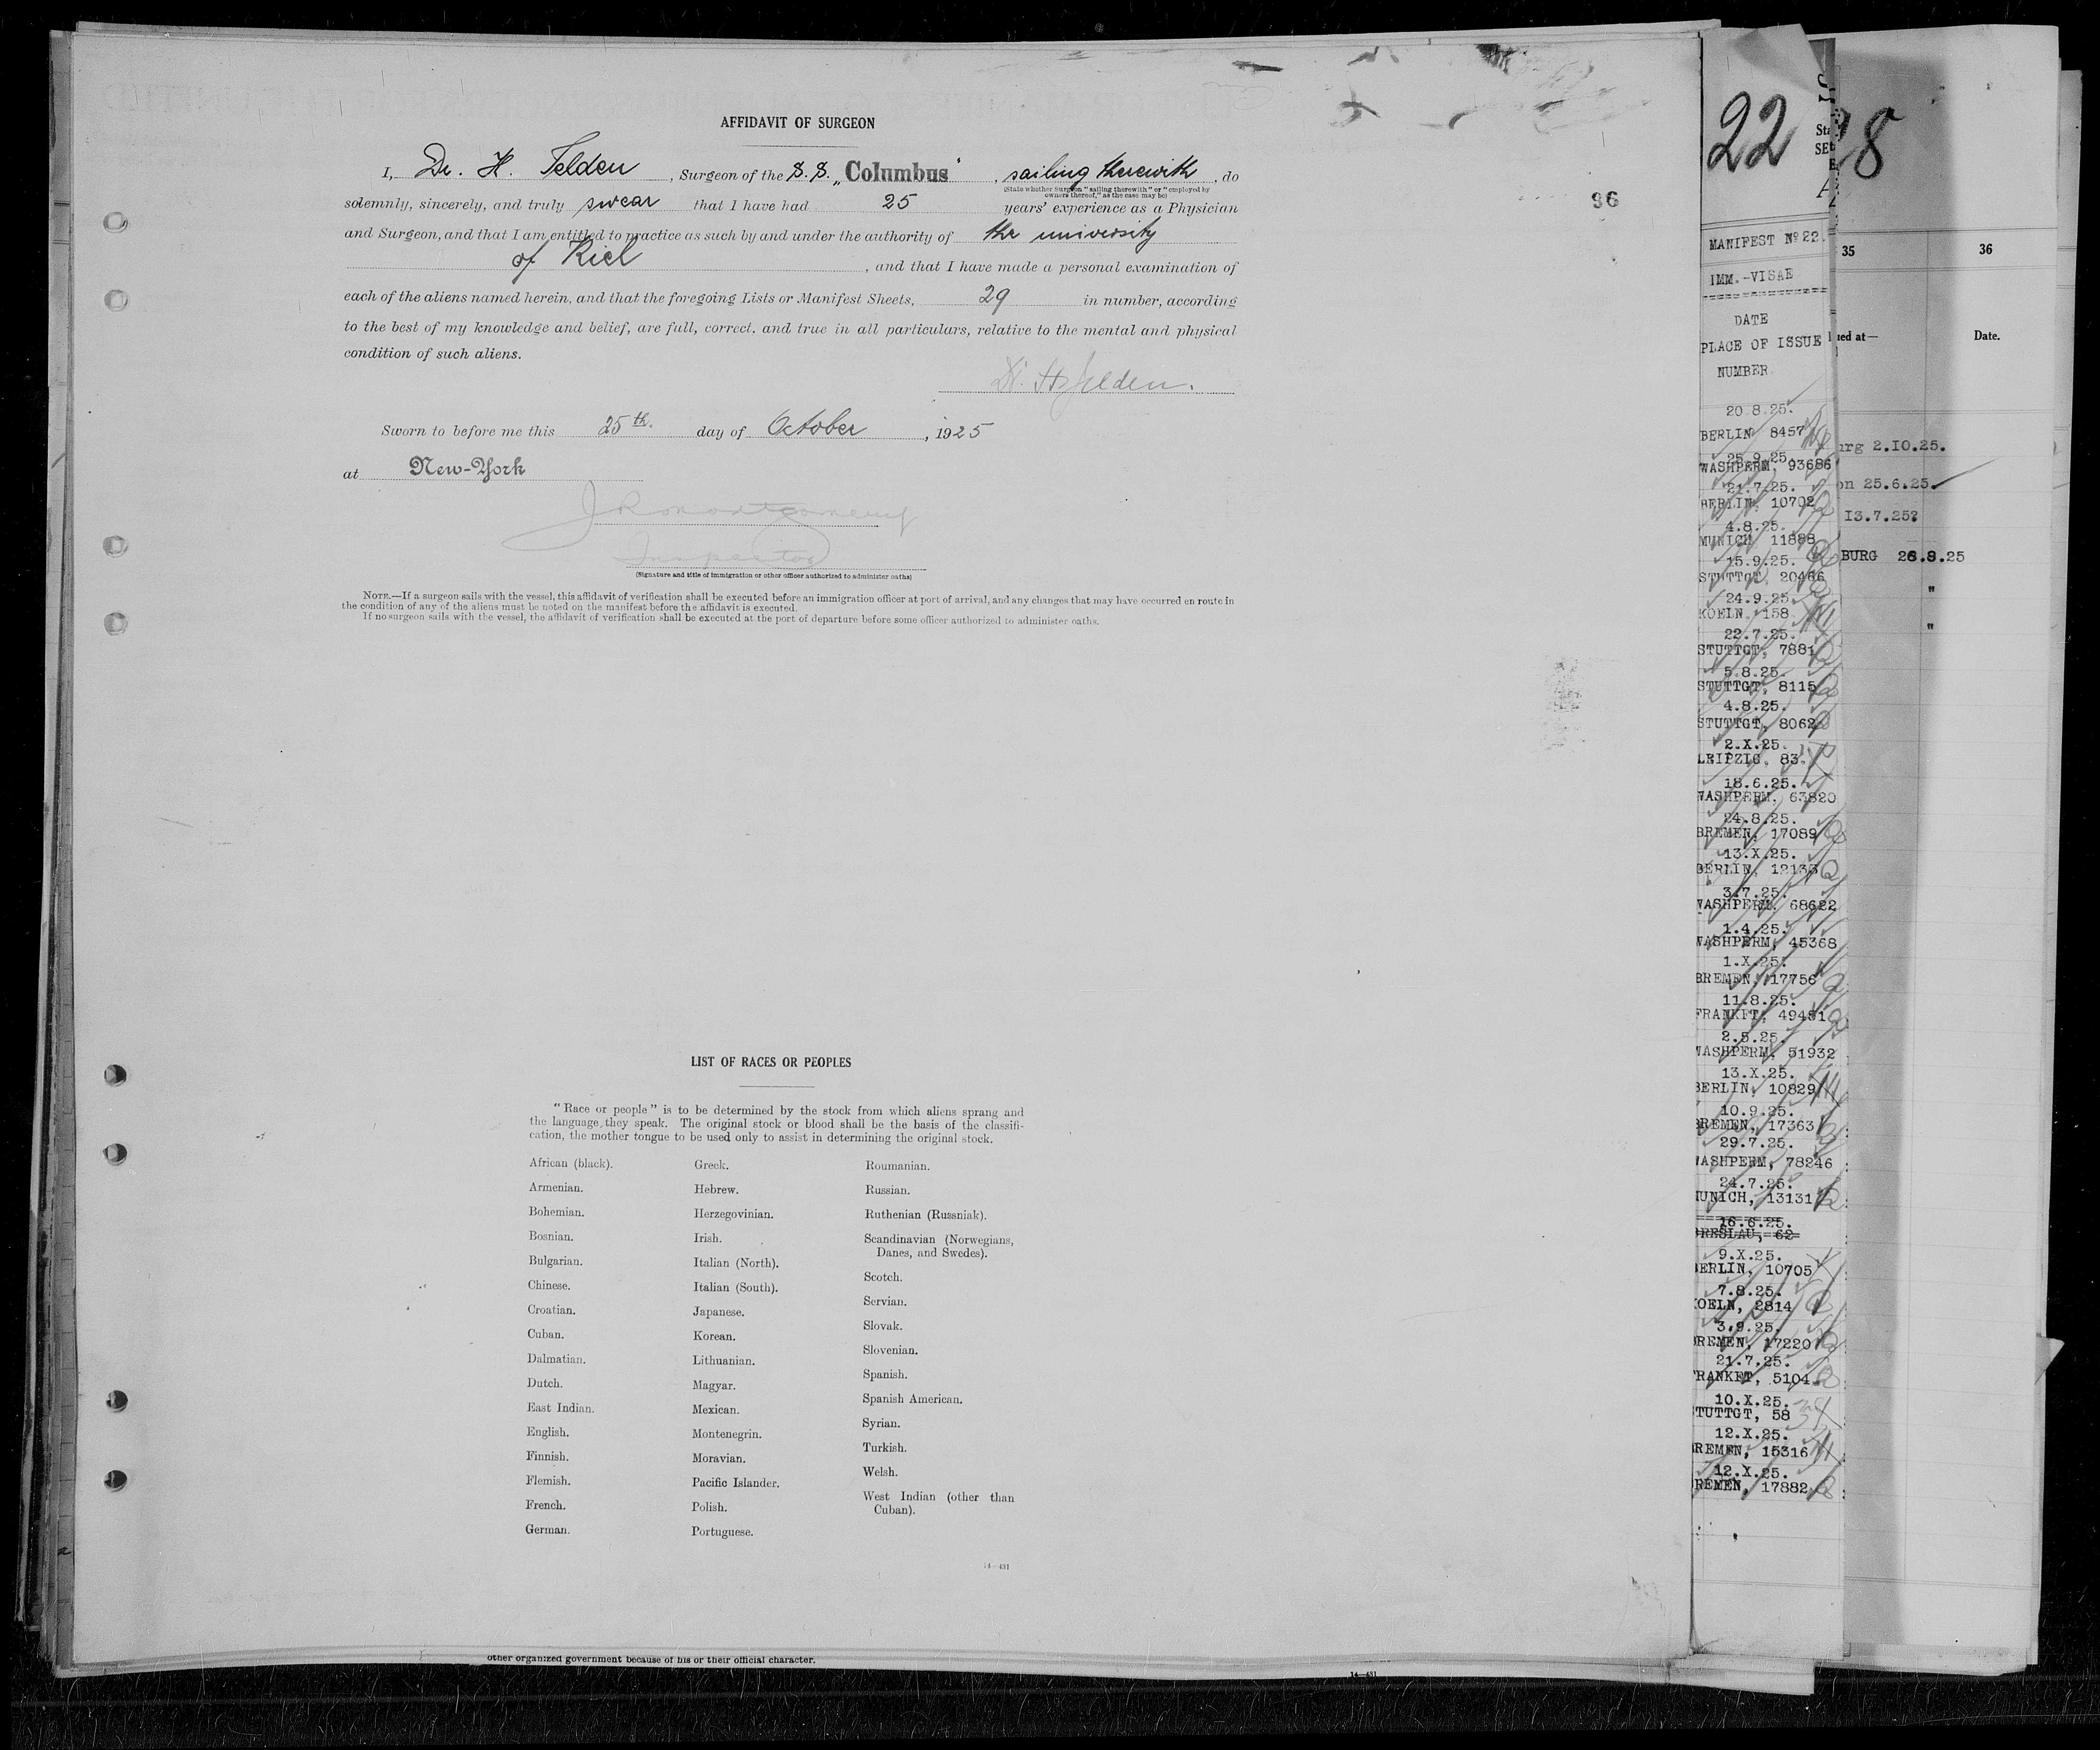 AFFIDAVIT OF SURGEON
I, Dr. H. Felden, Surgeon of the S.S. „Columbus“, sailing therewith, do
(State whether Surgeon "sailing therewith" or "employed by
owners thereof," as the case may be)
solemnly, sincerely, and truly swear that I have had 25 years' experience as a Physician
and Surgeon, and that I am entitled to practice as such by and under the authority of the university
of Kiel, and that I have made a personal examination of
each of the aliens named herein, and that the foregoing Lists or Manifest Sheets, 29 in number, according
to the best of my knowledge and belief, are full, correct, and true in all particulars, relative to the mental and physical
condition of such aliens.
Dr. H. Felden.
Sworn to before me this 25th. day of October, 1925
at New-York
Inspector
(Signature and title of immigration or other officer authorized to administer oaths)
NOTE.—If a surgeon sails with the vessel, this affidavit of verification shall be executed before an immigration officer at port of arrival, and any changes that may have occurred en route in
the condition of any of the aliens must be noted on the manifest before the affidavit is executed.
If no surgeon sails with the vessel, the affidavit of verification shall be executed at the port of departure before some officer authorized to administer oaths.
96
LIST OF RACES OR PEOPLES
"Race or people" is to be determined by the stock from which aliens sprang and
the language they speak. The original stock or blood shall be the basis of the classifi-
cation, the mother tongue to be used only to assist in determining the original stock.
African (black).
Armenian.
Bohemian.
Bosnian.
Bulgarian.
Chinese.
Croatian.
Cuban.
Dalmatian.
Dutch.
East Indian.
English.
Finnish.
Flemish.
French.
German.
Greek.
Hebrew.
Herzegovinian.
Irish.
Italian (North).
Italian (South).
Japanese.
Korean.
Lithuanian.
Magyar.
Mexican.
Montenegrin.
Moravian.
Pacific Islander.
Polish.
Portuguese.
Roumanian.
Russian.
Ruthenian (Russniak).
Scandinavian (Norwegians,
Danes, and Swedes).
Scotch.
Servian.
Slovak.
Slovenian.
Spanish.
Spanish American.
Syrian.
Turkish.
Welsh.
West Indian (other than
Cuban).
14—431
other organized government because of his or their official character.
14—431
22
MANIFEST Nº 22.
IMM.-VISAE
DATE
PLACE OF ISSUE
NUMBER
20.8.25.
BERLIN 8457
25.9.25.
WASHPERM, 93686
21.7.25.
BERLIN, 10702
4.8.25.
MUNICH 11888
15.9.25.
STUTTGT, 20466
24.9.25.
KOELN, 158
22.7.25.
STUTTGT, 7881
5.8.25.
STUTTGT, 8115
4.8.25.
STUTTGT, 8062
2.X.25.
LEIPZIG, 83.
18.6.25.
WASHPERM, 63820
24.8.25.
BREMEN, 17089
13.X.25.
BERLIN, 12133
3.7.25.
WASHPERM, 68622
1.4.25.
WASHPERM, 45368
1.X.25.
BREMEN, 17756
11.8.25.
FRANKFT, 49451
2.5.25.
WASHPERM, 51932
13.X.25.
BERLIN, 10829
10.9.25.
BREMEN, 17363
29.7.25.
WASHPERM, 78246
24.7.25.
MUNICH, 13131
16.6.25.
BRESLAU, 62
9.X.25.
BERLIN, 10705
7.8.25.
KOELN, 2814
3.9.25.
BREMEN, 17220
21.7.25.
FRANKFT, 5104
10.X.25.
STUTTGT, 58
12.X.25.
BREMEN, 15316
12.X.25.
BREMEN, 17882
8
35
36
ued at—
Date.
urg 2.10.25.
on 25.6.25.
13.7.25?
BURG 26.8.25
"
"